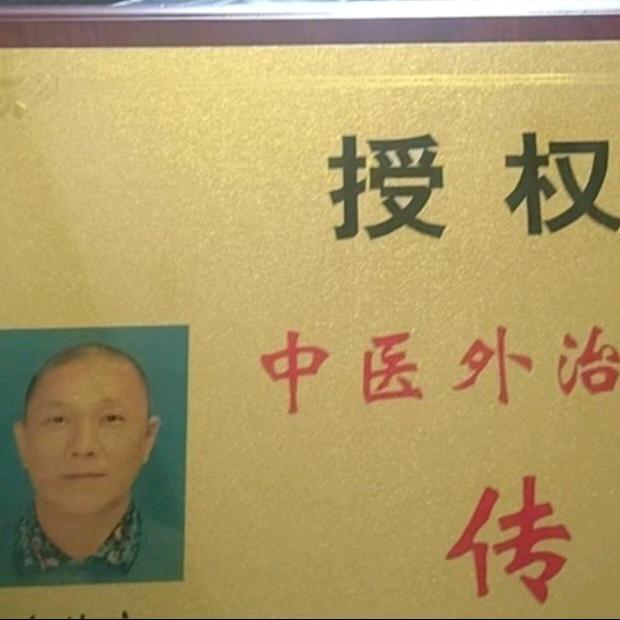 授权
中医外治
传